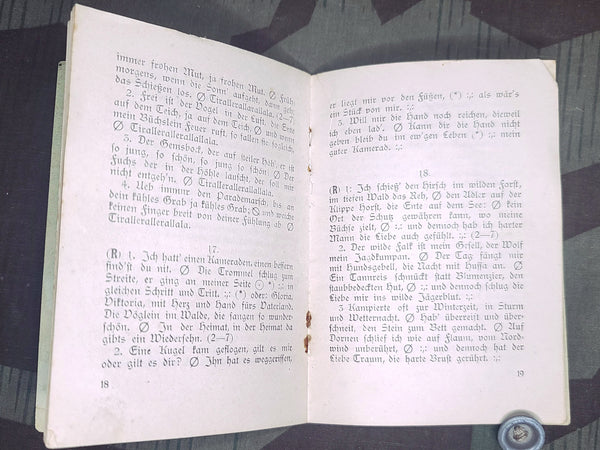 immer frohen Mut, ja frohen Mut. Ø Früh-
morgens, wenn die Sonn' aufgeht, dann geht
das Schießen los. Ø Tirallerallerallala. (2—7
2. Frei ist der Vogel in der Luft, die Ente
auf dem Teich, ja auf dem Teich, Ø und wenn
mein Büchslein Feuer ruft, so fallen sie sogleich,
Ø Tirallerallerallala.
3. Der Gemsbock, der auf steiler Höh', er ist
so jung, so schön, so jung, so schön, Ø der
Fuchs der in der Höhle lauscht, der soll mir
nicht entgeh'n. Ø Tirallerallerallala.
4. Ueb immer den Parademarsch, bis an
dein kühles Grab ja kühles Grab; Ø und weiche
keinen Finger breit von deiner Fühlung ab Ø
Tirallerallerallala.
17.
(R) 1. Ich hatt' einen Kameraden, einen bessern
find'st du nit. Ø Die Trommel schlug zum
Streite, er ging an meiner Seite ⊙ *) :,: in
gleichen Schritt und Tritt. :,: (*) oder: Gloria,
Viktoria, mit Herz und Hand fürs Vaterland.
Die Vöglein im Walde, die sangen so wunder-
schön. Ø In der Heimat, in der Heimat da
gibts ein Wiedersehn. (2—7)
2. Eine Kugel kam geflogen, gilt es mir
oder gilt es dir? Ø Ihn hat es weggerissen,
18
er liegt mir vor den Füßen, (*) :,: als wär's
ein Stück von mir. :,:
3. Will mir die Hand noch reichen, dieweil
ich eben lad'. Ø Kann dir die Hand nicht
geben bleib du im ew'gen Leben (*) :,: mein
guter Kamerad. :,:
18.
(R) 1: Ich schieß' den Hirsch im wilden Forst,
im tiefen Wald das Reh, Ø den Adler auf der
Klippe Horst, die Ente auf dem See: Ø kein
Ort der Schutz gewähren kann, wo meine
Büchse zielt, Ø :,: und dennoch hab ich harter
Mann die Liebe auch gefühlt. :,: (2—7)
2. Der wilde Falk ist mein Gesell, der Wolf
mein Jagdkumpan. Ø Der Tag fängt mir
mit Hundsgebell, die Nacht mit Hussa an. Ø
Ein Tannreis schmückt statt Blumenzier, den
staubbedeckten Hut, Ø :,: und dennoch schlug die
Liebe mir ins wilde Jägerblut. :,:
3 Kampierte oft zur Winterzeit, in Sturm
und Wetternacht. Ø Hab' überreift und über-
schneit, den Stein zum Bett gemacht. Ø Auf
Dornen schlief ich wie auf Flaum, vom Nord-
wind unberührt, Ø :,: und dennoch hat der
Liebe Traum, die harte Brust gerührt. :,:
19